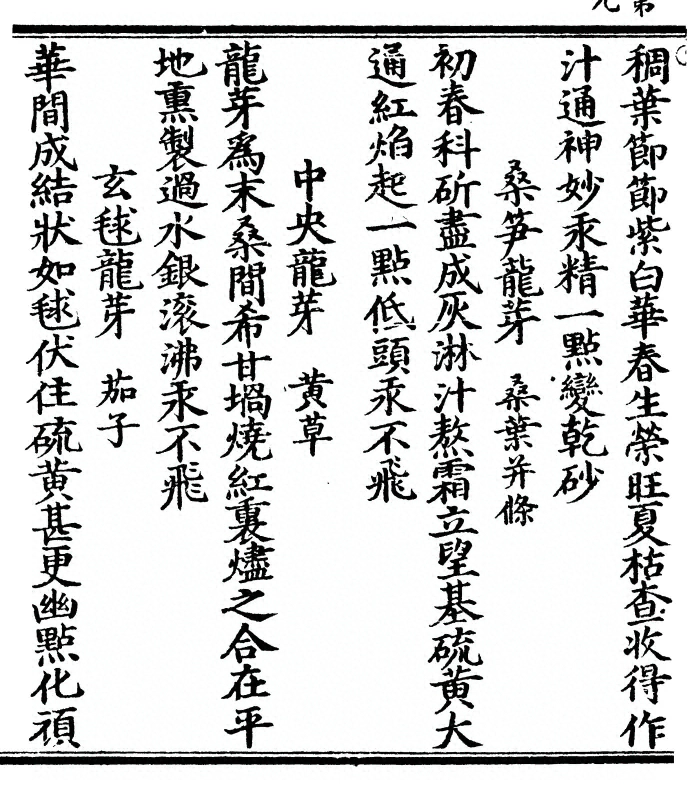 稠葉節節紫白華春生榮旺夏枯查收得作
汁通神妙汞精一點變乾砂
桑笋龍芽　桑葉并條
初春科斫盡成灰淋汁熬霜立望基硫黃大
通紅焰起一點低頭汞不飛
中央龍芽　黃草
龍芽爲末桑間希甘堝燒紅裏燼之合在平
地熏製過水銀滚沸汞不飛
玄毬龍芽　茄子
華間成結狀如毬伏住硫黃甚更幽點化須